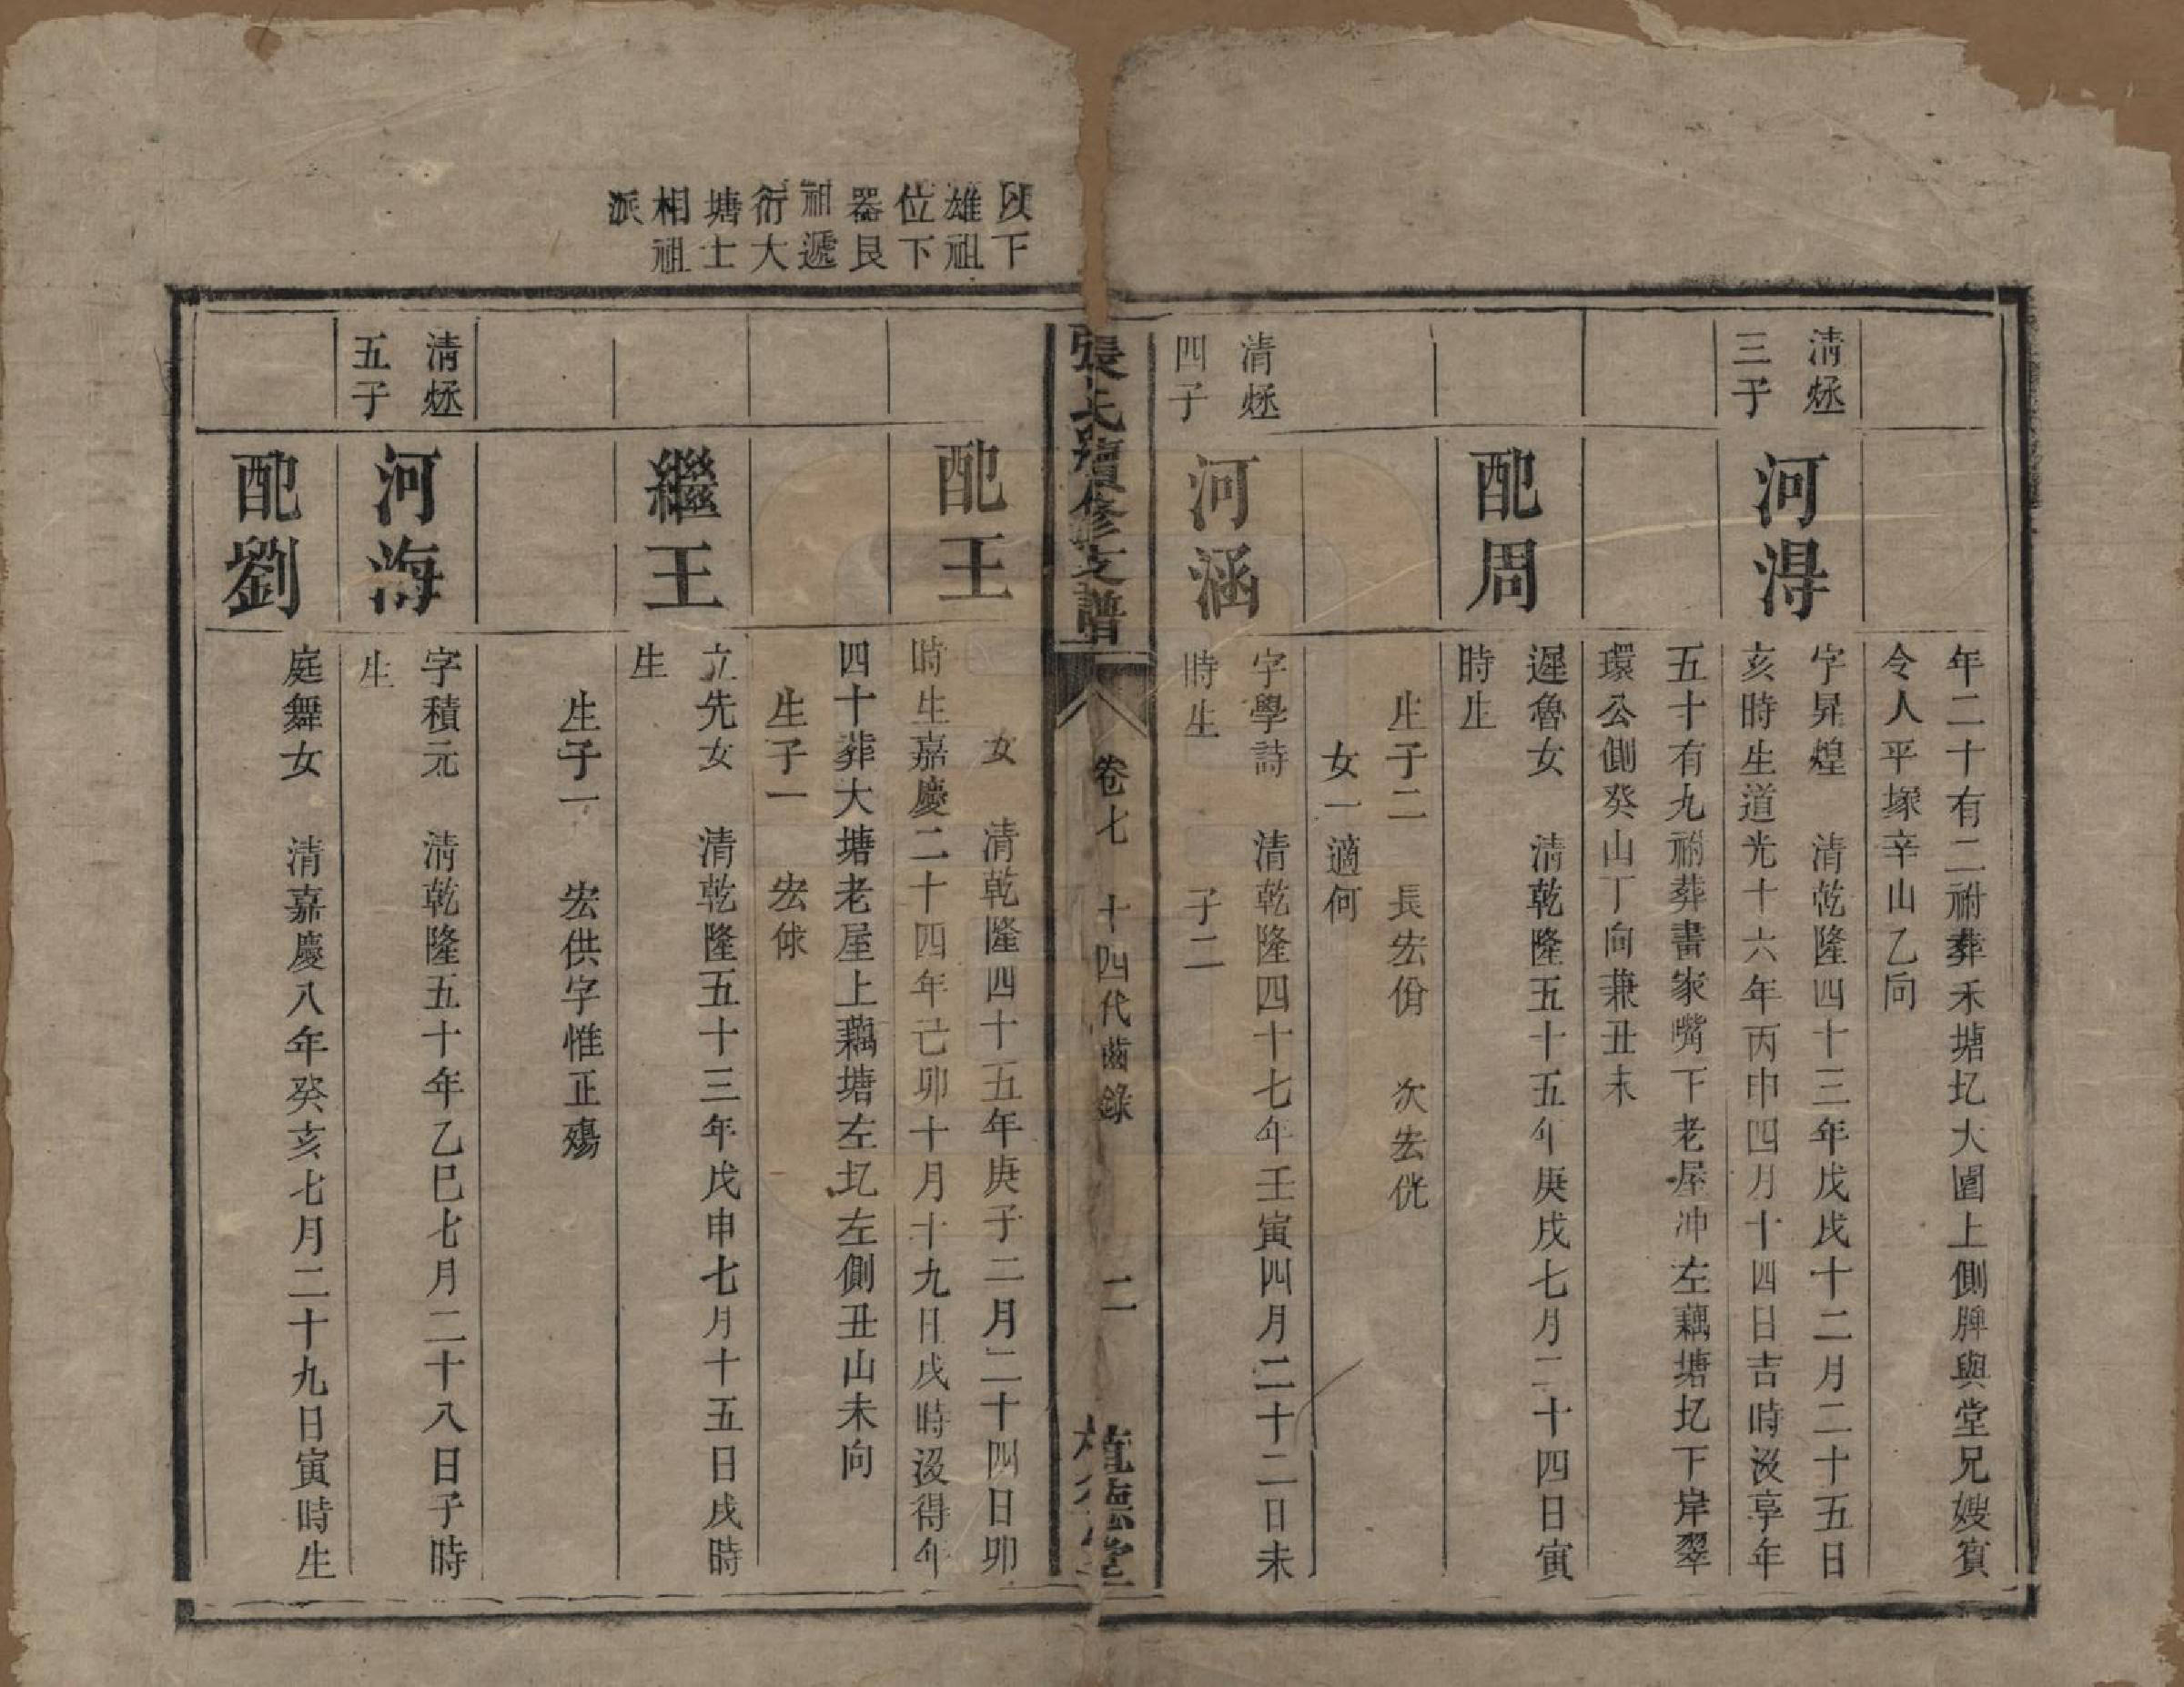 年二十有二祔葬禾塘圫大圍上側脾與堂兄嫂賔
令人平塚辛山乙向
清烝
三子
河淂
字昇煌 清乾隆四十三年戊戌十二月二十五日
亥時生道光十六年丙申四月十四日吉時沒享年
五十有九祔葬書家嘴下老屋冲左藕塘圫下岸翠
環公側癸山丁向兼丑未
配周
遲魯女 清乾隆五十五年庚戌七月二十四日寅
時生
生子二 長宏佾 次宏侊
女一適何
清烝
四子
河涵
字學詩 清乾隆四十七年壬寅四月二十二日未
時生 子二
張氏續修支譜
卷七 十四代齒錄
二
德堂
下
雄祖
位下
器艮
祖遞
衍大
塘士
相祖
派
配王
女 清乾隆四十五年庚子二月二十四日卯
時生嘉慶二十四年己卯十月十九日戌時沒得年
四十葬大塘老屋上藕塘左圫左側丑山未向
生子一 宏俅
繼王
立先女 清乾隆五十三年戊申七月十五日戌時
生
生子一 宏供字惟正殤
清烝
五子
河海
字積元 清乾隆五十年乙巳七月二十八日子時
生
配劉
庭舞女 清嘉慶八年癸亥七月二十九日寅時生